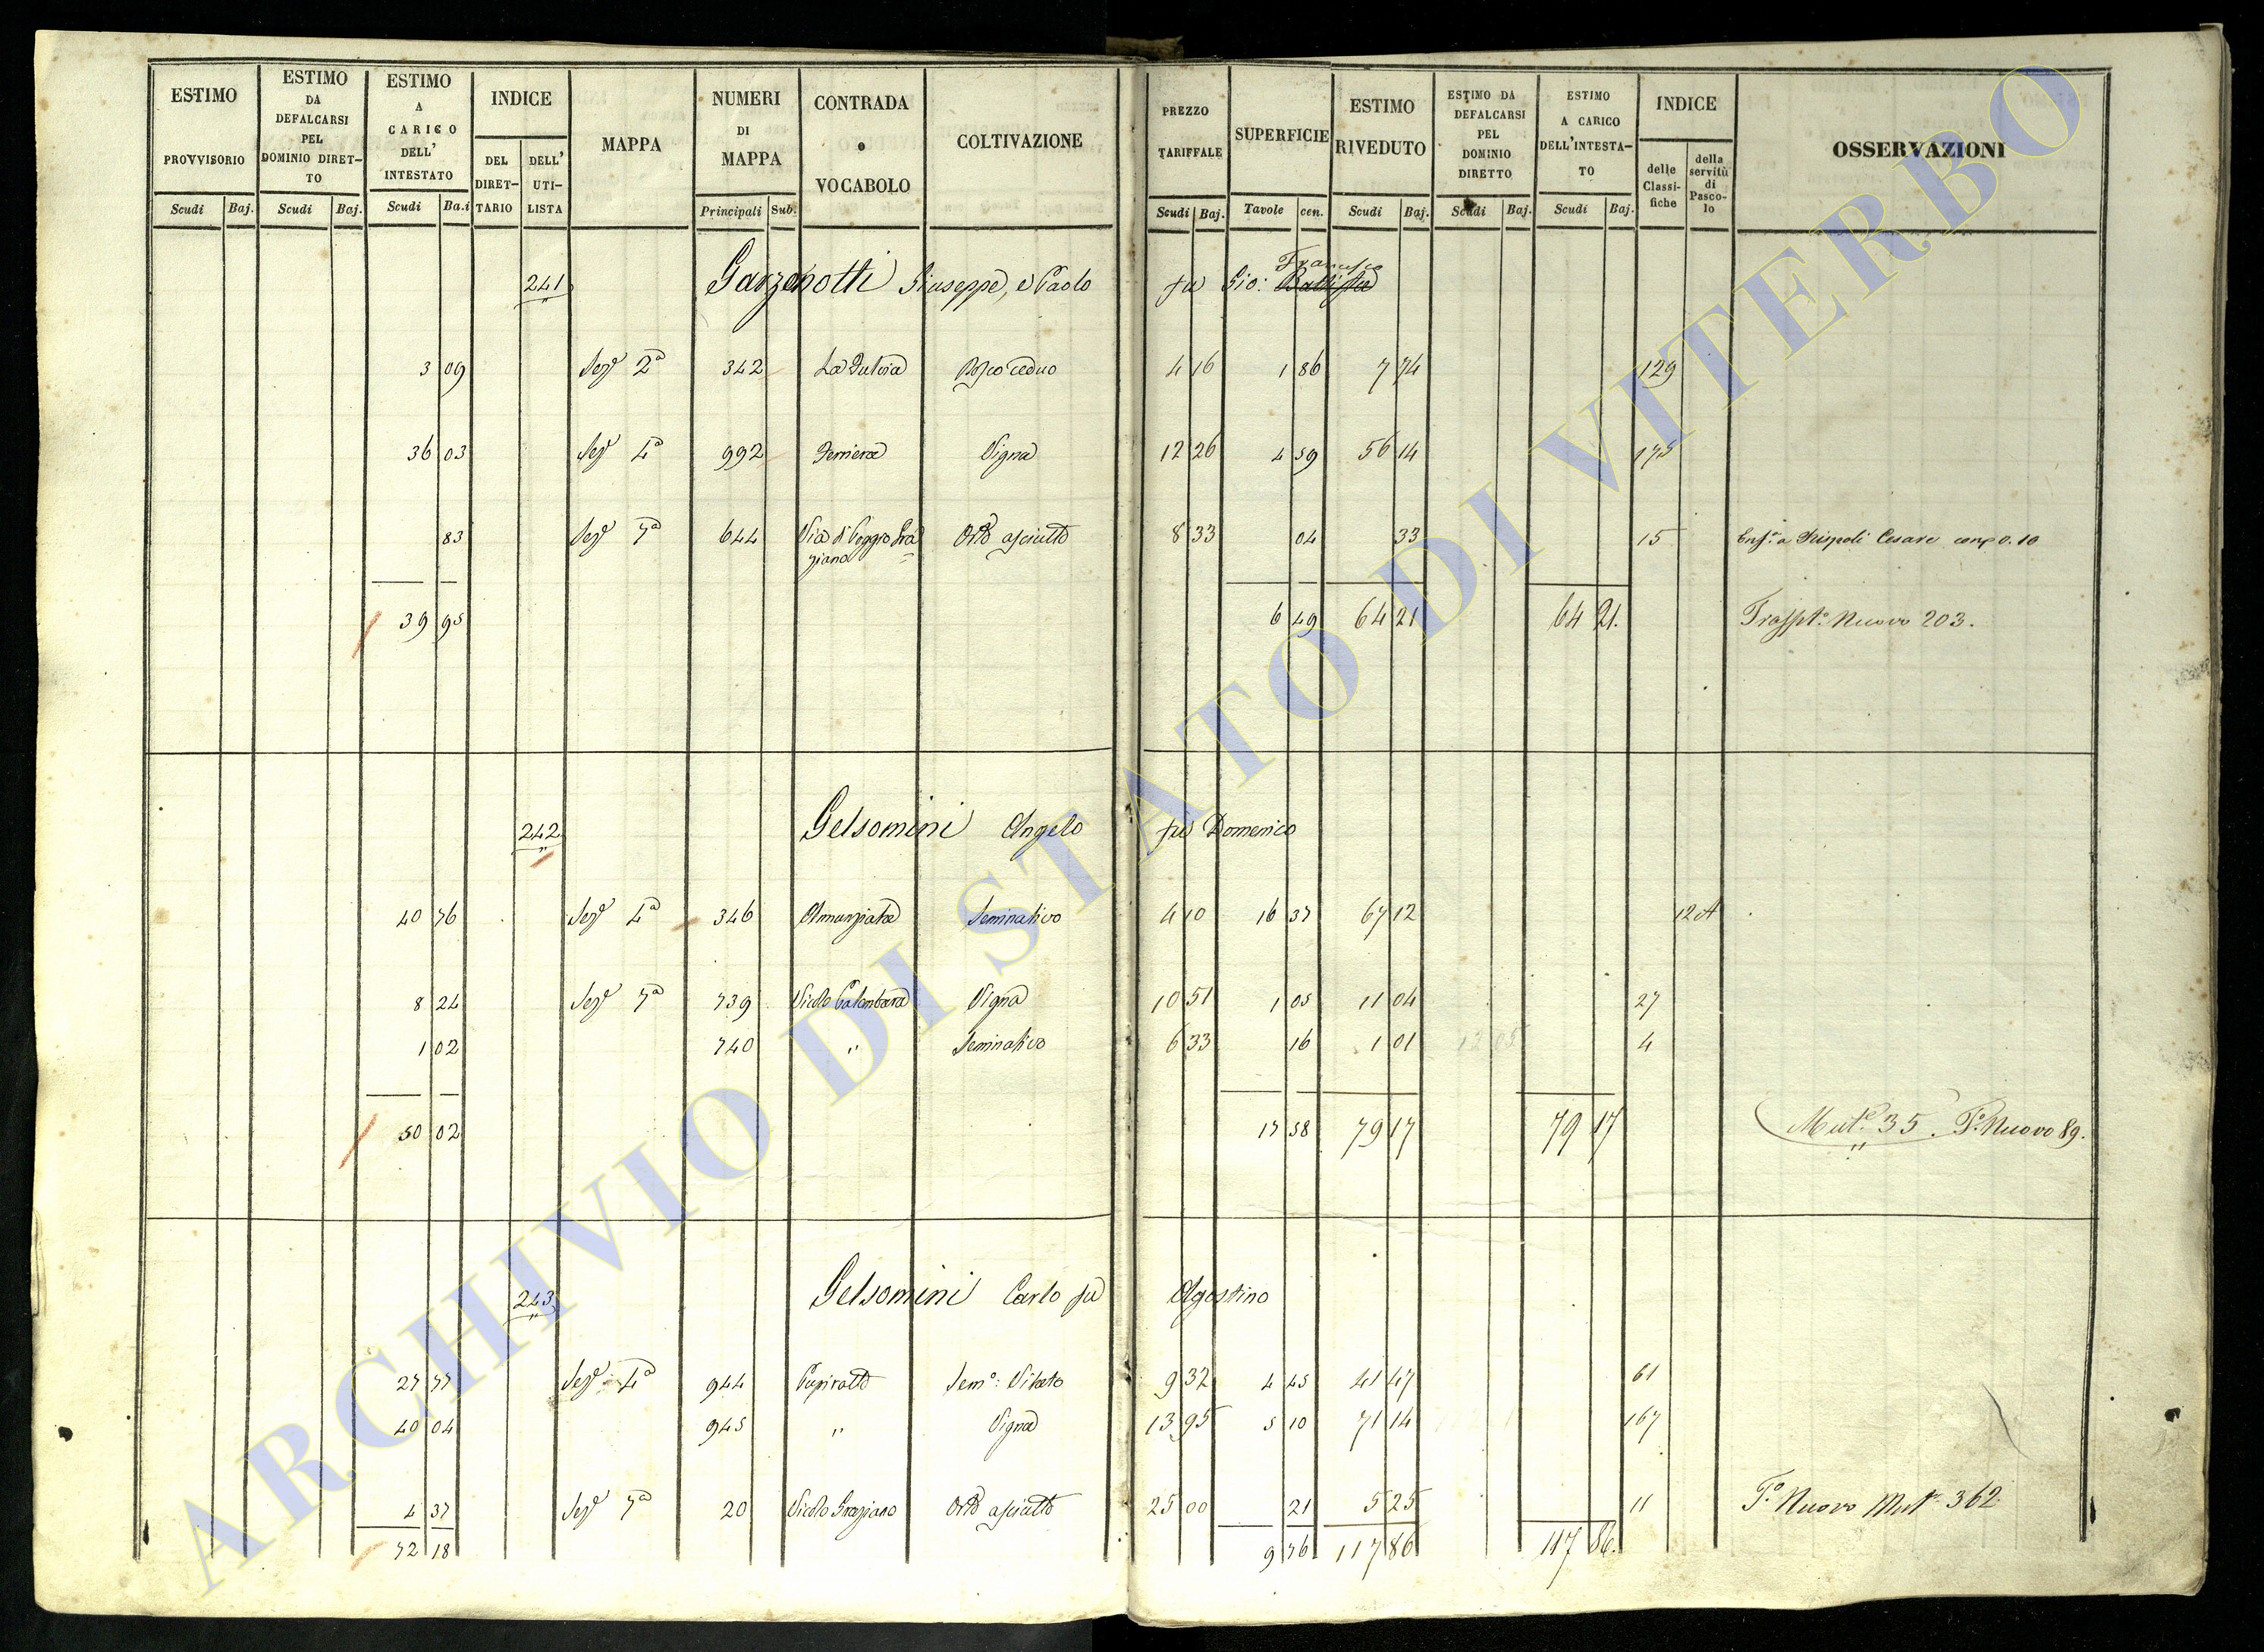 ESTIMO PROVVISORIO | ESTIMO DA DEFALCARSI PEL DOMINIO DIRETTO | ESTIMO A CARICO DELL' INTESTATO | INDICE | MAPPA | NUMERI DI MAPPA | CONTRADA o VOCABOLO | COLTIVAZIONE | PREZZO TARIFFALE | SUPERFICIE | ESTIMO RIVEDUTO | ESTIMO DA DEFALCARSI PEL DOMINIO DIRETTO | ESTIMO A CARICO DELL'INTESTATO | INDICE | OSSERVAZIONI
DEL DIRETTARIO | DELL' UTILISTA | delle Classifiche | della servitù di Pascolo
Scudi | Baj. | Scudi | Baj. | Scudi | Ba.i | Principali | Sub. | Scudi | Baj. | Tavole | cen. | Scudi | Baj. | Scudi | Baj. | Scudi | Baj.
241 Garzonotti Giuseppe, e Paolo fu Gio: Battista Francesco
3 09 Sez.e 2a 342 Bosco ceduo 4 16 1 86 7 74 129
36 03 Sez.e 4a 992 Vigna 12 26 4 59 56 14 175
83 Sez.e 7a 644 Via di Poggio Graziano Orto asciutto 8 33 04 33 15 Enf.a a Rispoli Cesare 0.10
39 95 6 49 64 21 64 21. Trasp.to Nuovo 203.
242 Gelsomini Angelo fu Domenico
40 76 Sez.e 4a 346 Annunziata Seminativo 4 10 16 37 67 12 12 A
8 24 Sez.e 7a 739 Vicolo Palombara Vigna 10 51 1 05 11 04 27
1 02 740 " Seminativo 6 33 16 1 01 4
50 02 17 58 79 17 79 17 Mut.e 35. T.o Nuovo 89.
243 Gelsomini Carlo fu Agostino
27 77 Sez.e 4a 944 Sem.o: Vitato 9 32 4 45 41 47 61
40 04 945 " Vigna 13 95 5 10 71 14 167
4 37 Sez.e 7a 20 Vicolo Graziano Orto asciutto 25 00 21 5 25 11 T.o Nuovo Mut.e 362.
72 18 9 76 117 86 117 86.
ARCHIVIO DI STATO DI VITERBO